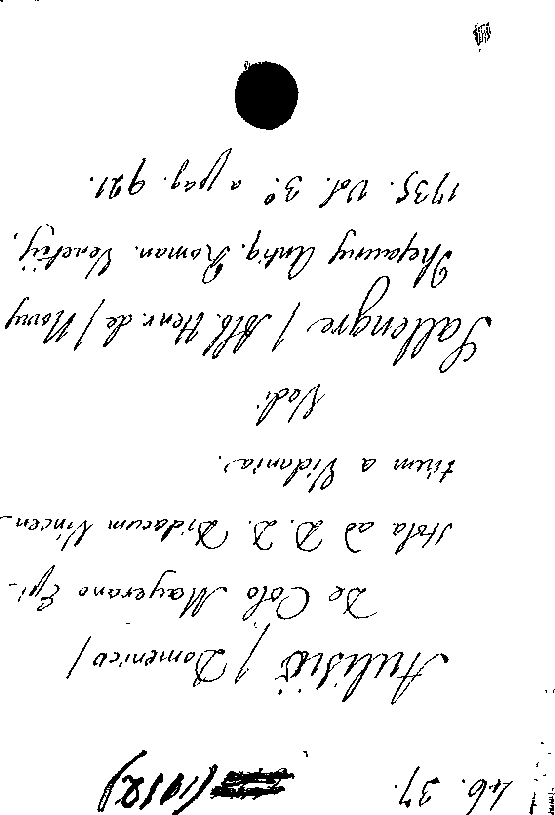 46. 37. (1912)
Aulisio / Domenico /
De Colo Mayerano Epi-
stola ad D. D. Didacum Vincen-
tium a Vidania.
Vedi
Sallengre / Alb. Henr. de / Novus
Thesaurus Antiq. Roman. Venetijs,
1735. Vol. 3.º a pag. 921.